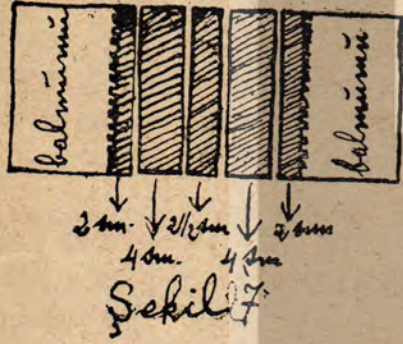 balmumu
balmumu
2 sm. 2 1/2 sm 2 sm
4 sm. 4 sm
Şekil 7